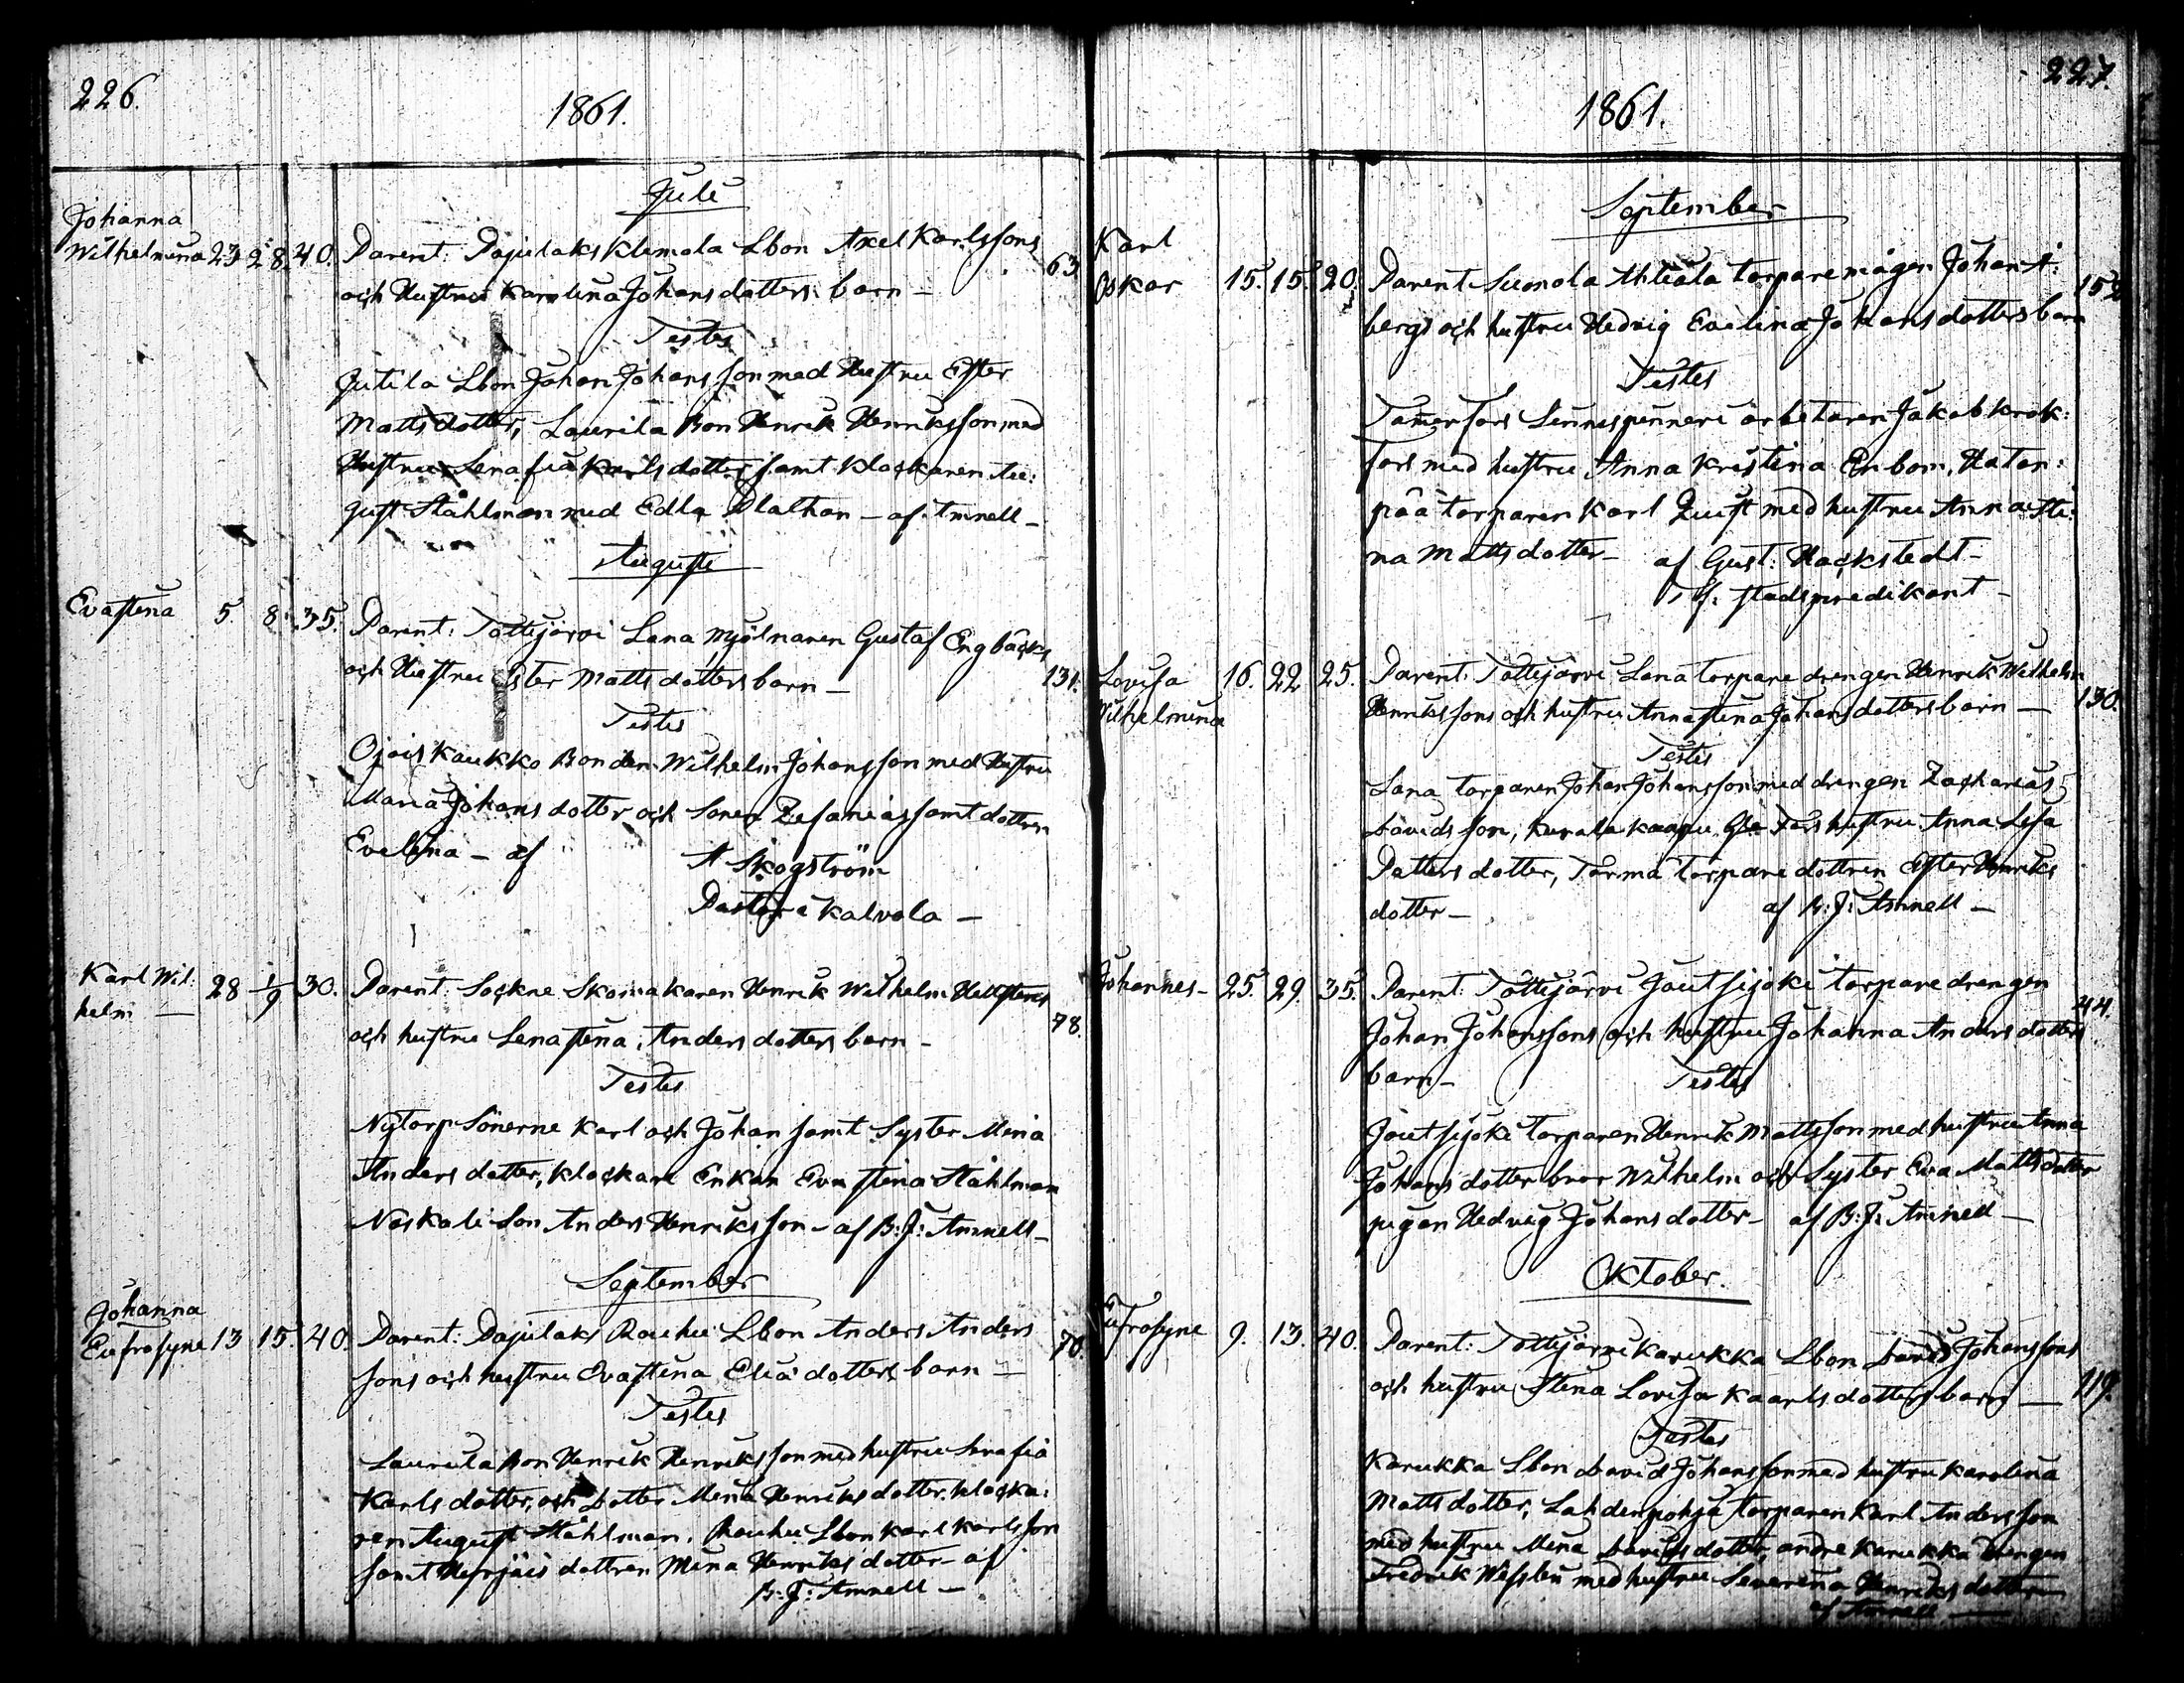 226.
1861.
Juli
Johanna
Wilhelmina 23 28. 40. Parent: Pajulaks Klemola Lbon Axel Karlssons 63.
och Hustrus Karolina Johansdotters barn —
Testes
Jutila Lbon Johan Johansson med Hustru Ester
Mattsdotter, Laurila Bon Henrik Henriksson med
Hustru Lenafia Karlsdotter samt klockaren Au:
gust Ståhlman med Edla — af Amnell —
Augusti
Evastina 5 8. 35. Parent: Tottijärvi Lana mjölnaren Gustaf Engbäcks
och Hustru Ester Mattsdotters barn — 131.
Testes
Ojois Kaukko Bonden Wilhelm Johansson med Hustru
Maria Johansdotter och Sonen Zefanias samt dottren
Evelina — af A Skogström
Pastor i Kalvola —
Karl Wil:
helm — 28 1/9 30. Parent: Sockne Skomakaren Henrik Wilhelm Hellstens
och hustru Lenastina Andersdotters barn — 78.
Testes
Nytorp Sönerne Karl och Johan samt Syster Mina
Andersdotter, klockare Enkan Eva Stina Ståhlman
Naskali Son Anders Henriksson — af B: J: Amnell —
September
Johanna
Eufrosyne 13 15. 40. Parent: Pajulaks Rauhu Lbon Anders Anders 70.
sons och hustru Evastina Eliædotters barn —
Testes
Laurila Bon Henrik Henriksson med hustru Lenafia
Karlsdotter, och dotter Mina Henriksdotter, klocka:
ren August Ståhlman, Rauhu Lbon Karl Karlsson
samt dottren Mina Henriksdotter — af
B: J: Amnell —
227.
1861.
September
Karl
Oskar 15. 15. 20. Parent: Suonola Ahtiala torparemågen Johan A: 152
bergs och hustru Hedvig Evelina Johansdotters barn
Testes
Tamerfors Linnespinneri arbetaren Jakob Krok:
fors med hustru Anna Kristina Enbom, Hatan:
pää torparen Karl Quist med hustru Anna Sti:
na Mattsdotter — af Gust: Hackstedt —
Tf: Stadspredikant —
Lovisa 16. 22. 25. Parent: Tottijärvi Lana torpare drengen Henrik Wilhelm
Wilhelmina Henrikssons och hustru Annastina Johansdotters barn — 130.
Testes
Lana torparen Johan Johansson med drengen Zacharias
Davidsson, Kurala hustru Anna Lisa
Pettersdotter, Tarma torpare dottren Ester Henriks
dotter — af B: J: Amnell —
Johannes — 25. 29. 35. Parent: Tottijärvi Joutsijoki torpare drengen 44.
Johan Johanssons och hustru Johanna Andersdotters
barn — Testes
Joutsijoki torparen Henrik Mattsson med hustru Anna
Johansdotter bror Wilhelm och Syster Eva Mattsdotter
pigan Hedvig Johansdotter — af B: J: Amnell —
Oktober.
Eufrosyne 9. 13. 40. Parent: Tottijärvi Karukka Lbon David Johanssons
och hustru Stina Lovisa Kaarlsdotters barn — 119.
Testes
Karukka Lbon David Johansson med hustru Karolina
Mattsdotter, Lahdenpohja torparen Karl Andersson
med hustru Mina Davidsdotter, andre Karukka drengen
Fredrik Wesslin med hustru Severina Henriksdotter
af Amnell —